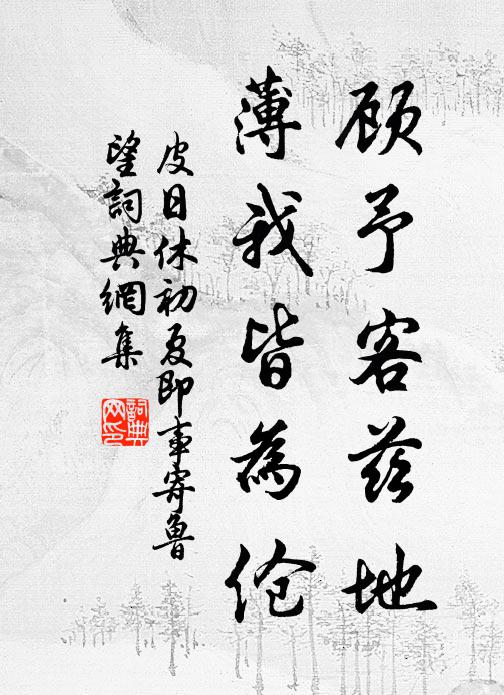 顾予客兹地
薄我皆為伧
皮日休初夏即事寄魯
望詞典網集
詞典
网印